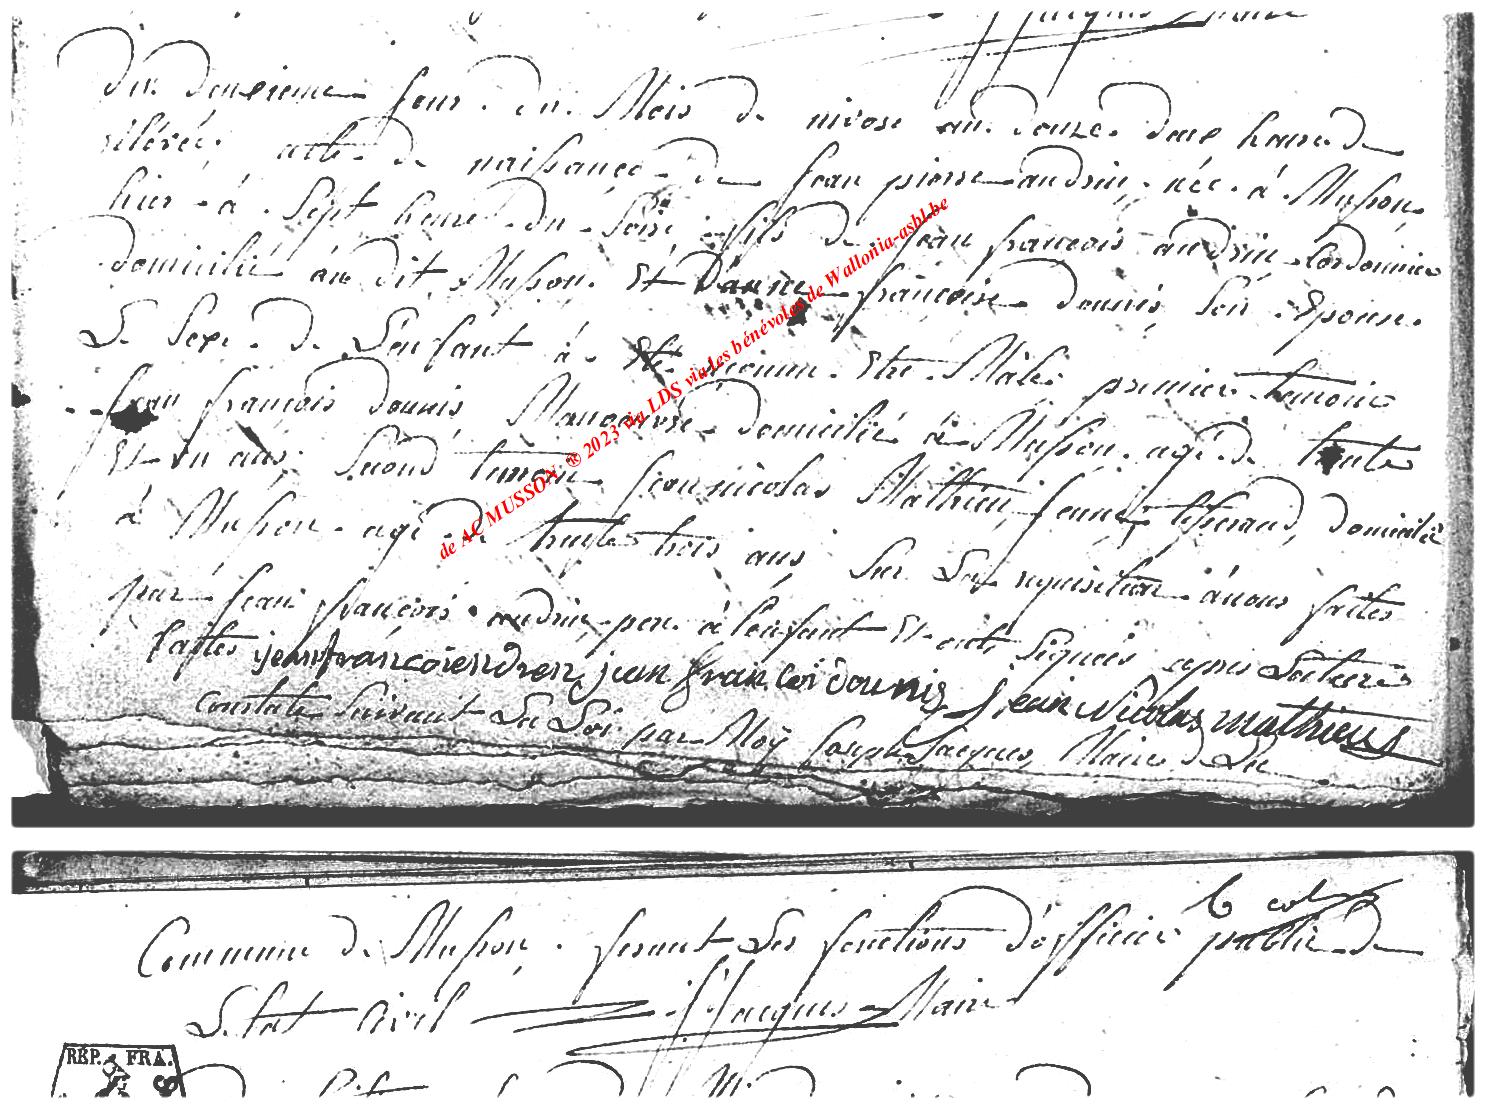 JJacques Maire
du deuxieme jour du Mois de nivose an douze deux heure de
rélévée acte de naissance de Jean pierre andrin née á Musson
hier á Sept heure du Soir fils de Jean francois andrin Cordonnier
domicilié au dit Musson Et Danne françoise dounis Son Epouse
Le Sexe de L'enfant á Eté reconnu Etre Mâle premier temoin
Jean francois dounis Manoeuvre domicilié á Musson agé de trente
Et un ans Sécond temoin Jean nicolas Mathieu Jeune tisserand domicilié
á Musson agé de trente trois ans Sur La requisition á nous faites
par Jean françois andrin pere á l'enfant Et ont Signés apres Lecture
faittes jean francoi endren jean francoi dounis jean Nicolas mathieu
Constaté Suivant La Loi par Moÿ Joseph Jacques Maire de La
de AC MUSSON ® 2023 via LDS via les bénévoles de Wallonia-asbl.be
6
Commune de Musson fesant Les fonctions d'officier public de
L'etat Civil JJacques Maire
RÉP. FRA.